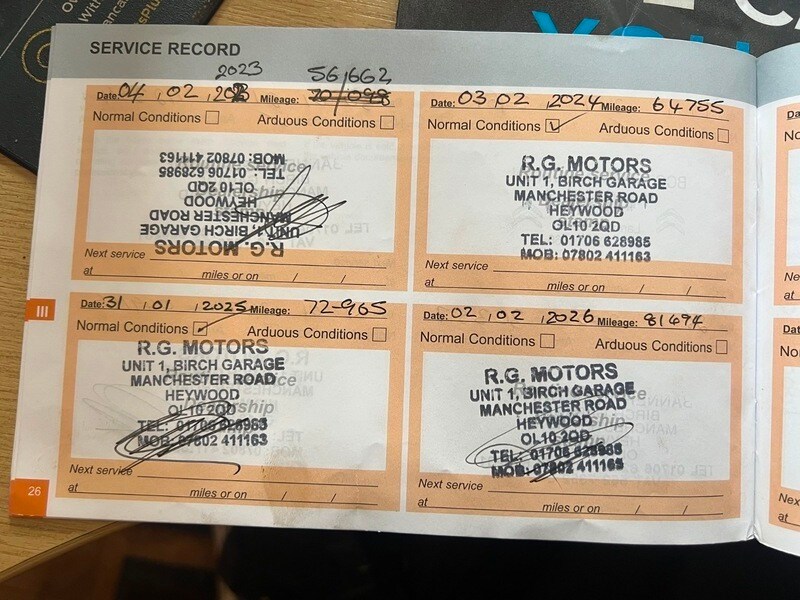 SERVICE RECORD
2023 56,662
Date: 04 02 Mileage:
Normal Conditions Arduous Conditions
R.G. MOTORS
UNIT 1, BIRCH GARAGE
MANCHESTER ROAD
HEYWOOD
OL10 2QD
TEL: 01706 628985
MOB: 07802 411163
Next service
at miles or on / /
Date: 03 02 2024 Mileage: 64755
Normal Conditions Arduous Conditions
R.G. MOTORS
UNIT 1, BIRCH GARAGE
MANCHESTER ROAD
HEYWOOD
OL10 2QD
TEL: 01706 628985
MOB: 07802 411163
Next service
at miles or on / /
III
Date: 31 01 2025 Mileage: 72-965
Normal Conditions Arduous Conditions
R.G. MOTORS
UNIT 1, BIRCH GARAGE
MANCHESTER ROAD
HEYWOOD
OL10 2QD
TEL: 01706 628985
MOB: 07802 411163
Next service
at miles or on / /
Date: 02 02 2026 Mileage: 81494
Normal Conditions Arduous Conditions
R.G. MOTORS
UNIT 1, BIRCH GARAGE
MANCHESTER ROAD
HEYWOOD
OL10 2QD
TEL: 01706 628985
MOB: 07802 411163
Next service
at miles or on / /
26